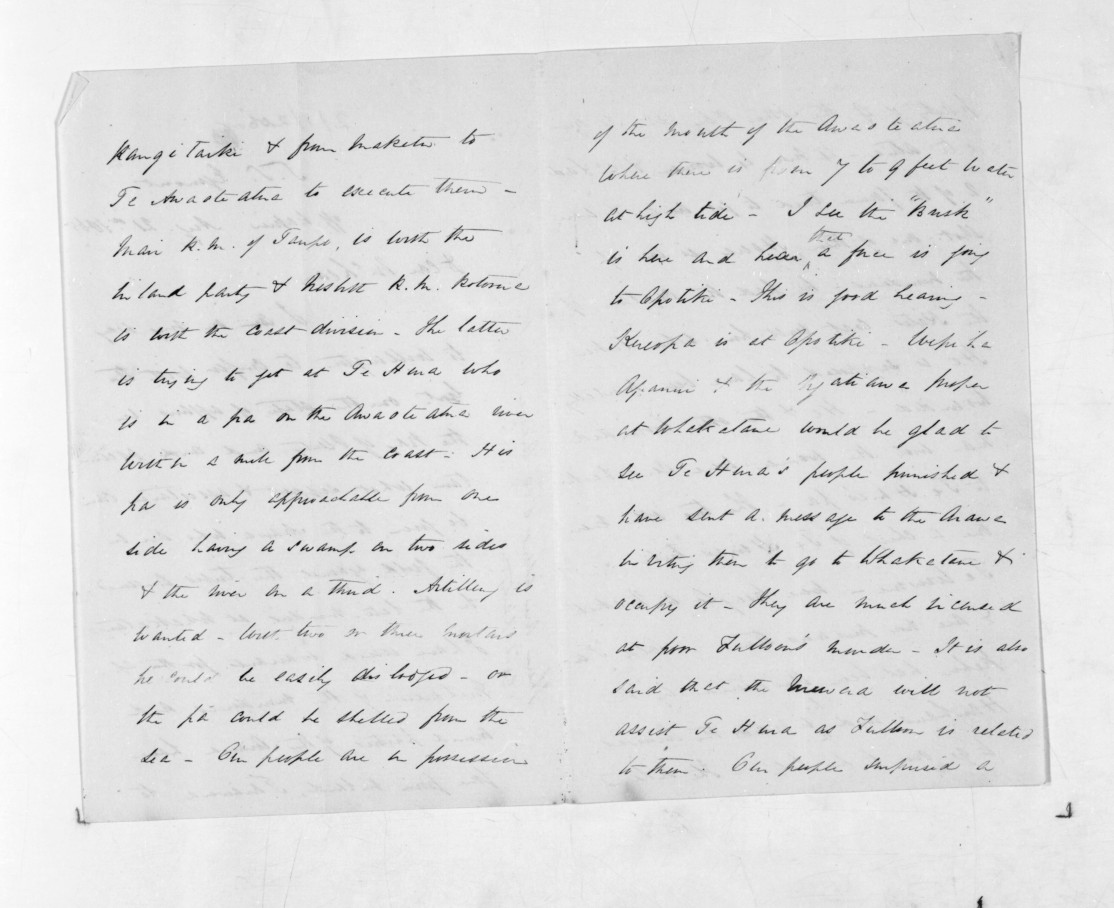 Rangitaiki & from Maketu to
Te Awaoteatua to execute them –
Mair R.M. of Taupo, is with the
inland party & Nesbitt R.M. Rotorua
is with the coast division – The latter
is trying to get at Te Hura who
is in a pa on the Awaoteatua river
within a mile from the coast – His
pa is only approachable from one
side having a swamp on two sides
& the river on a third. Artillery is
wanted – with two or three mortars
he could be easily dislodged – or
the pa could be shelled from the
sea – Our people are in possession
of the mouth of the Awaoteatua
where there is from 7 to 9 feet water
at high tide – I see the "Brisk"
is here and hear that a force is going
to Opotiki – This is good hearing –
Kereopa is at Opotiki – Wepiha
Apanui & the Ngatiawa proper
at Whakatane would be glad to
see Te Hura's people punished &
have sent a message to the Arawa
inviting them to go to Whakatane &
occupy it – They are much incensed
at poor Fulloon's murder – It is also
said that the Urewera will not
assist Te Hura as Fulloon is related
to them. Our people surprised a